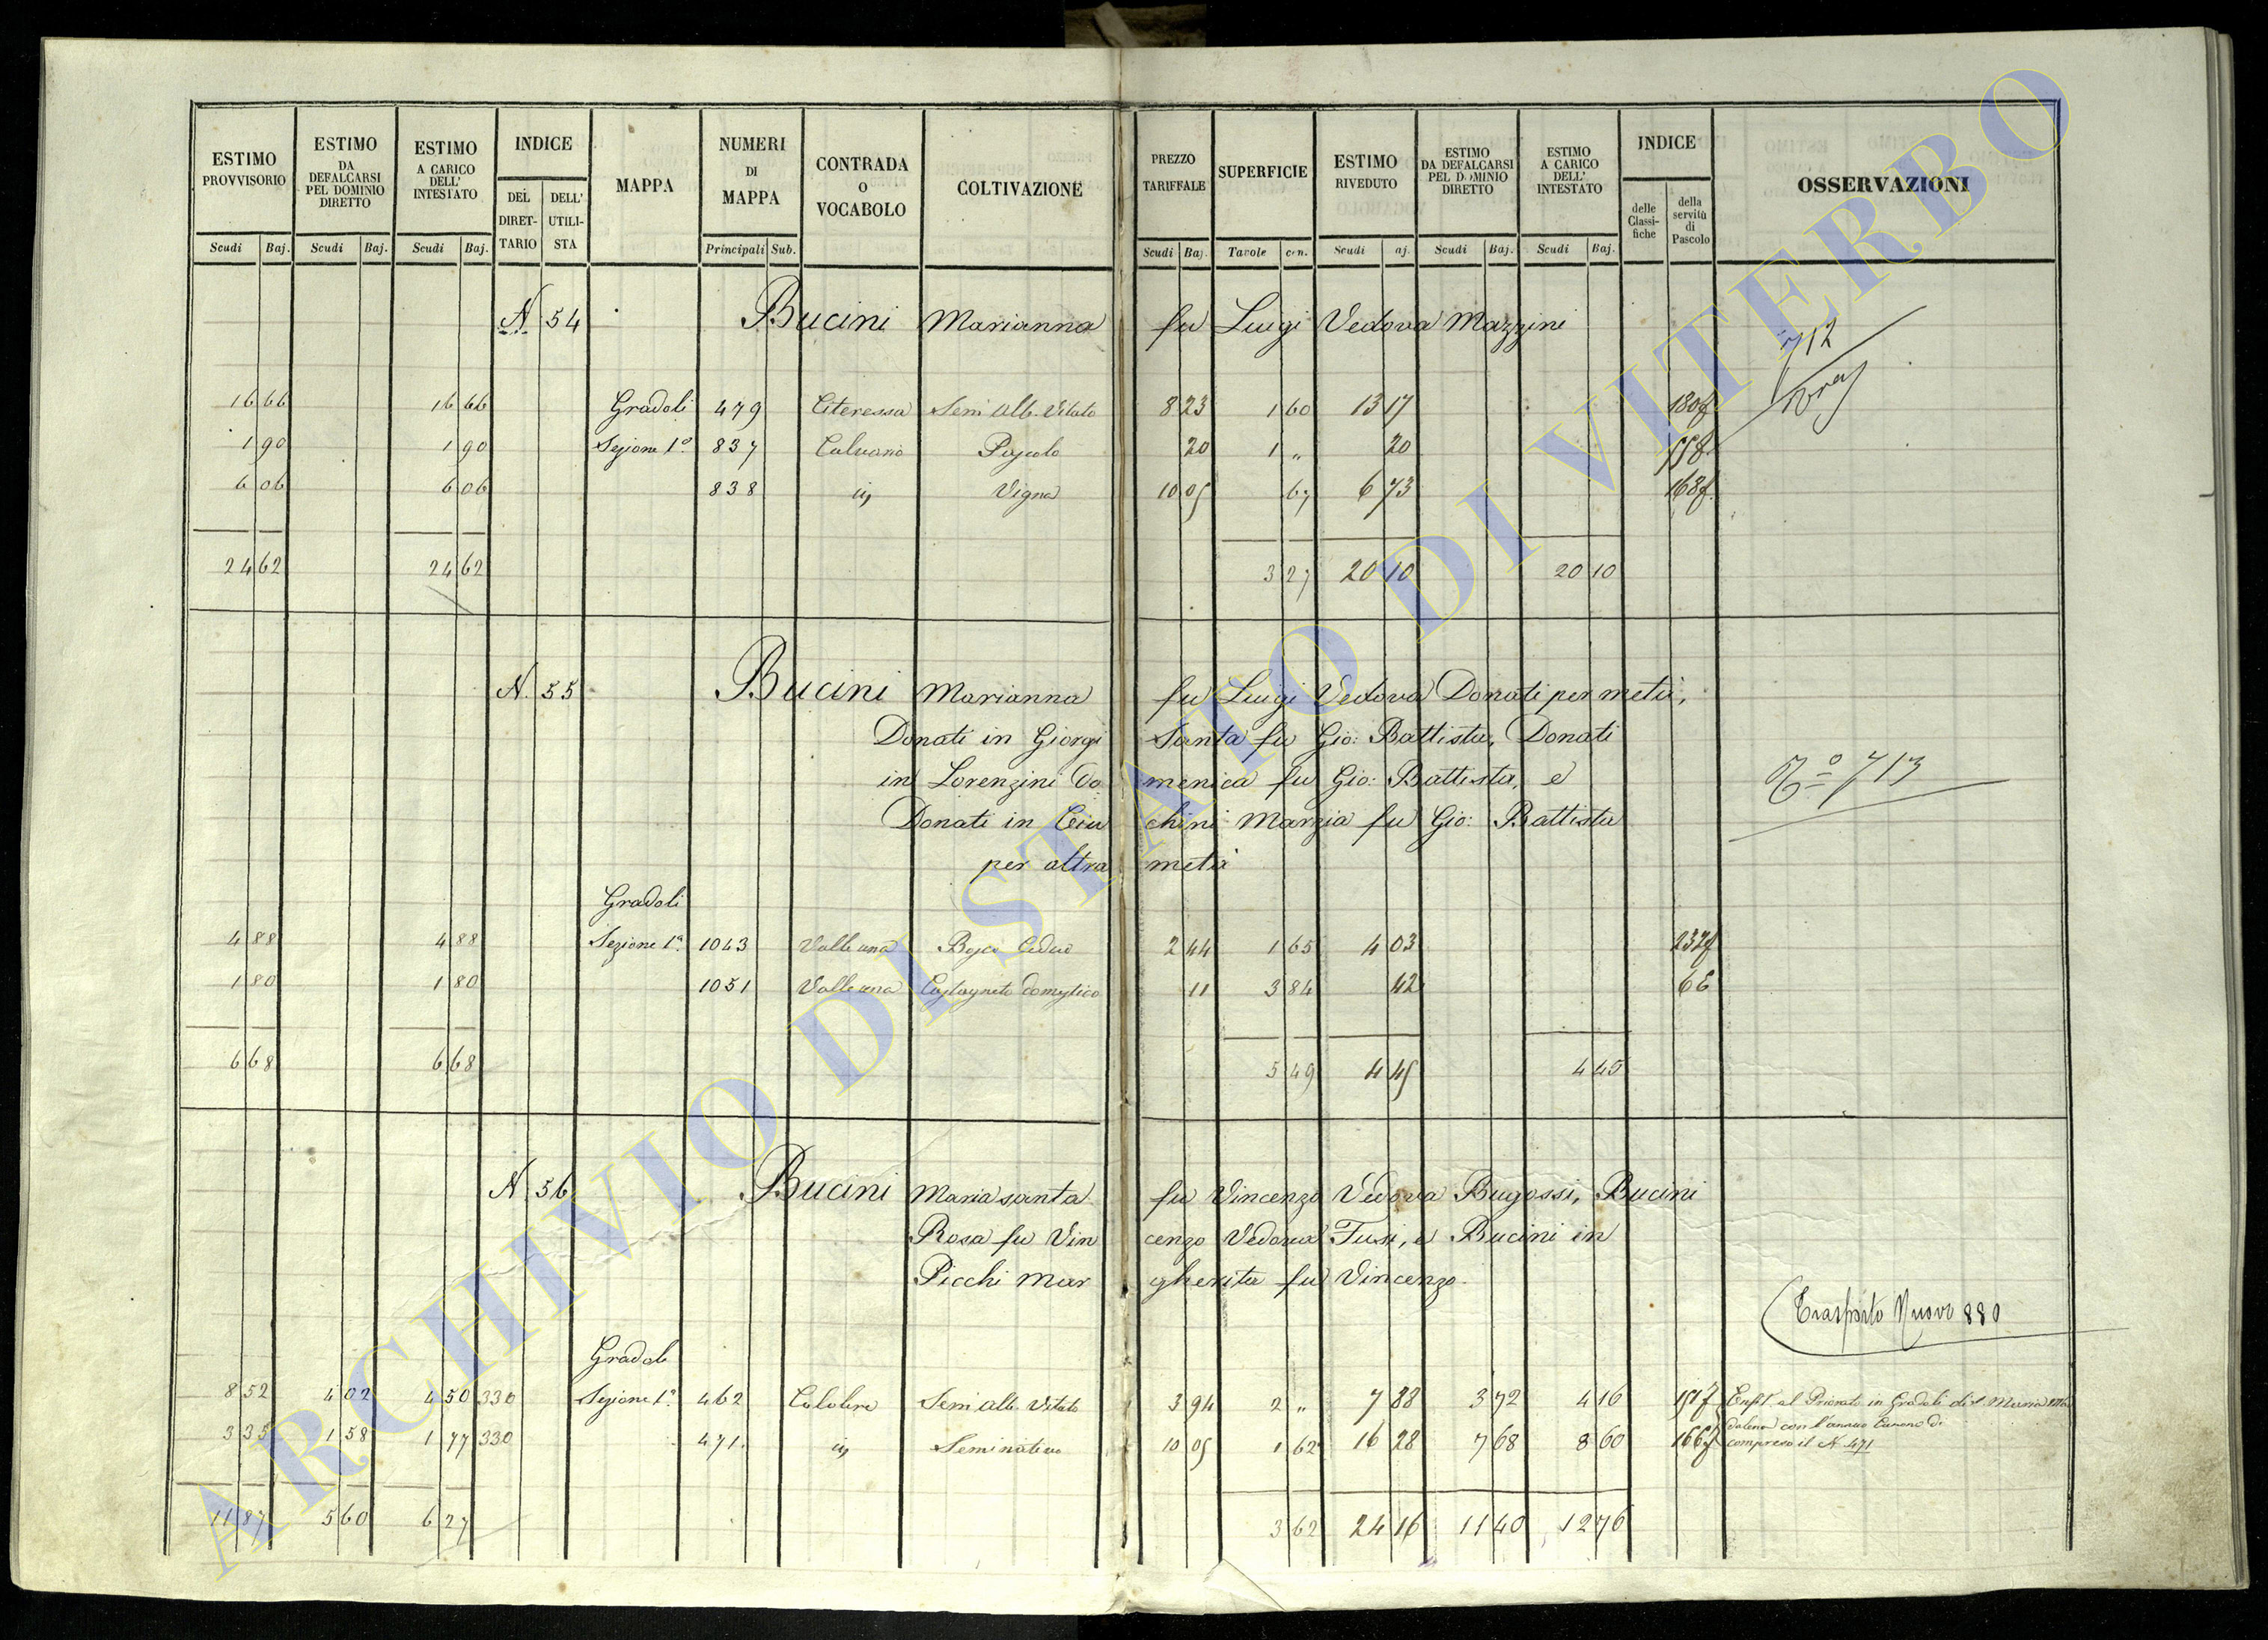 ESTIMO PROVVISORIO ESTIMO DA DEFALCARSI PEL DOMINIO DIRETTO ESTIMO A CARICO DELL' INTESTATO INDICE DEL DIRET- TARIO DELL' UTILI- STA MAPPA NUMERI DI MAPPA CONTRADA O VOCABOLO COLTIVAZIONE PREZZO TARIFFALE SUPERFICIE ESTIMO RIVEDUTO ESTIMO DA DEFALCARSI PEL DOMINIO DIRETTO ESTIMO A CARICO DELL' INTESTATO INDICE delle Classi- fiche della servitù di Pascolo OSSERVAZIONI
Scudi Baj. Scudi Baj. Scudi Baj. Principali Sub. Scudi Baj. Tavole cen. Scudi aj. Scudi Baj. Scudi Baj.
N. 54 Bucini Marianna fu Luigi Vedova Mazzini
712
16 66 16 66 Gradoli 479 Semi Alb. Vitato 8 23 1 60 13 17 180
1 90 1 90 Sezione 1ª 837 Calvano Pascolo 20 1 " 20
6 06 6 06 838 Vigna 10 05 67 6 73 168
24 62 24 62 3 27 20 10 20 10
N. 55 Bucini Marianna fu Luigi Vedova Donati per metà,
Donati in Giorgi Santa fu Gio: Battista, Donati
in Lorenzini Do menica fu Gio: Battista, e
Donati in Ciu chini Marzia fu Gio: Battista
per altra metà
713
Gradoli
4 88 4 88 Sezione 1ª 1043 Valle una Bosco Ceduo 2 44 1 65 4 03 232
1 80 1 80 1051 Valle una Castagneto domestico 11 3 84 42
6 68 6 68 5 49 4 45 4 45
N 56 Bucini Maria santa fu Vincenzo Vedova Bugossi, Bucini
Rosa fu Vin cenzo Vedova Fusi, e Bucini in
Picchi Mar gherita fu Vincenzo
Trasporto Nuovo 880
Gradoli
8 52 4 02 4 50 330 Sezione 1ª 462 Semi Alb. Vitato 3 94 2 " 7 88 3 72 4 16 Enfit. al Priorato in Gradoli di S. Maria Mad
dalena con l'annuo Canone di
3 35 1 58 1 77 330 471 Seminativo 10 05 1 62 16 28 7 68 8 60 166 compreso il N. 471
11 87 5 60 6 27 3 62 24 16 11 40 12 76
ARCHIVIO DI STATO DI VITERBO